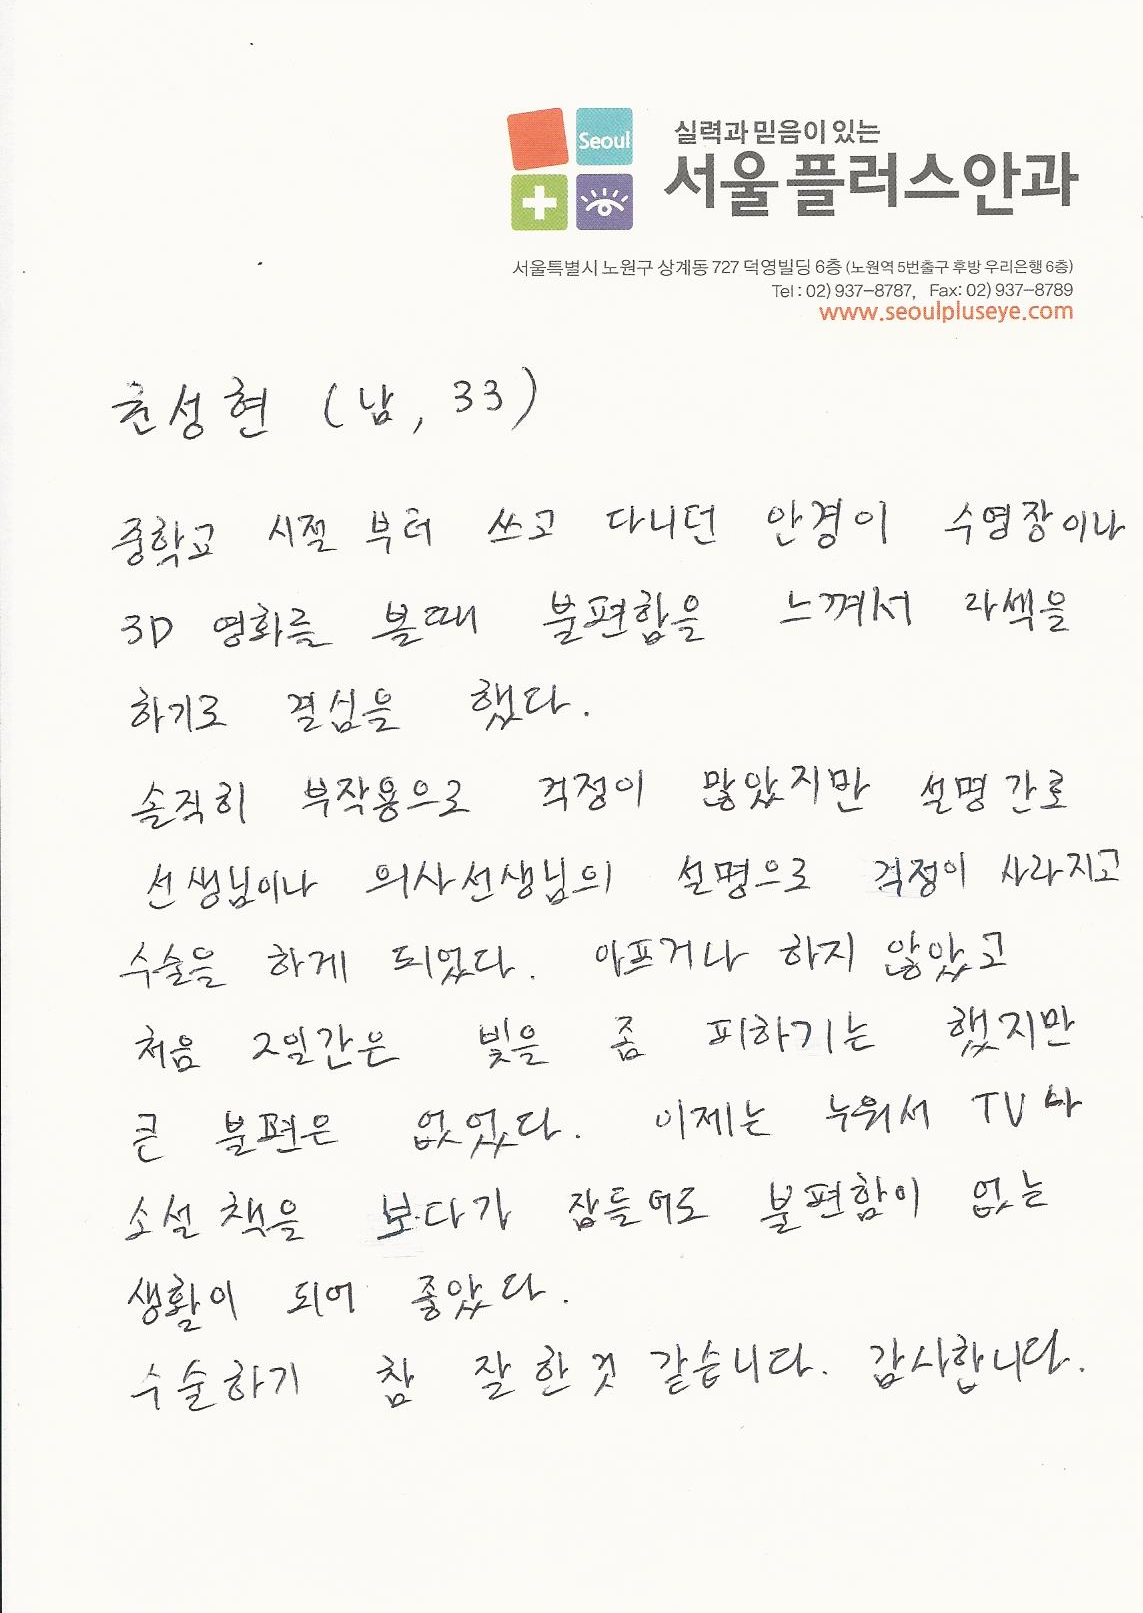 Seoul
실력과 믿음이 있는
서울플러스안과
서울특별시 노원구 상계동 727 덕영빌딩 6층 (노원역 5번출구 후방 우리은행 6층)
Tel : 02) 937-8787, Fax: 02) 937-8789
www.seoulpluseye.com
성현 (남, 33)
중학교 시절 부터 쓰고 다니던 안경이 수영장이나
3D 영화를 볼때 불편함을 느껴서 라섹을
하기로 결심을 했다.
솔직히 부작용으로 걱정이 많았지만 설명간로
선생님이나 의사선생님의 설명으로 걱정이 사라지고
수술을 하게 되었다. 아프거나 하지 않았고
처음 2일간은 빛을 좀 피하기는 했지만
큰 불편은 없었다. 이제는 누워서 TV나
소설책을 보다가 잠들어도 불편함이 없는
생활이 되어 좋았다.
수술하기 참 잘한것 같습니다. 감사합니다.